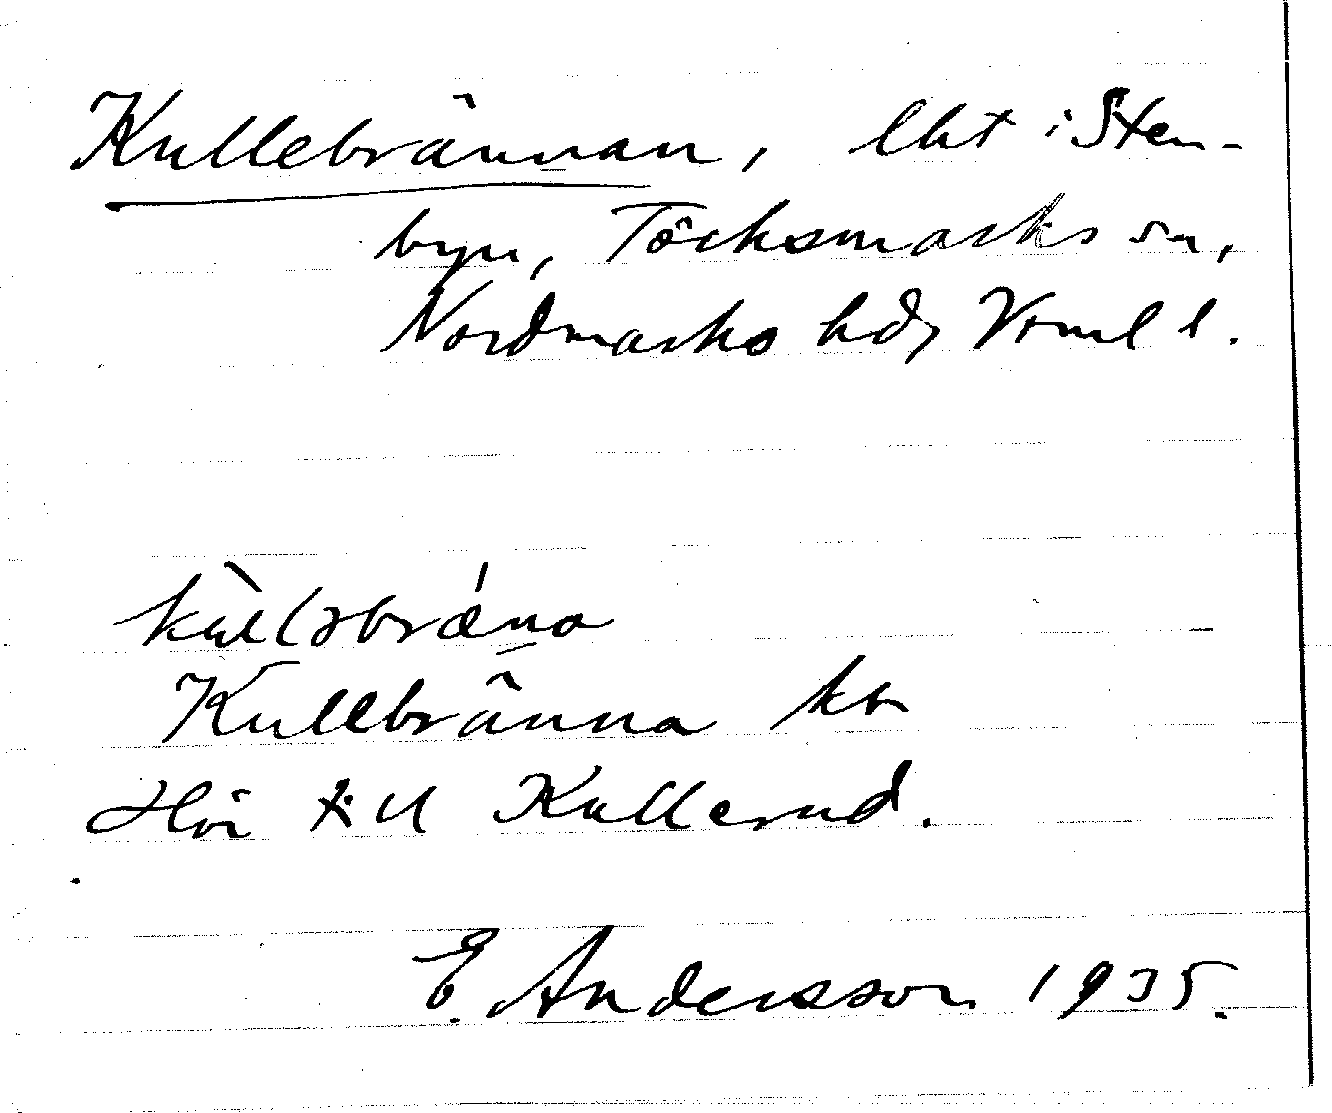 Kullebrännan, lht i Sten-
byn, Töcksmarks sn,
Nordmarks hd, Vrml l.
kùl(əbrǽna
Kullebränna kn
Hör till Kullerud.
E. Andersson 1935.